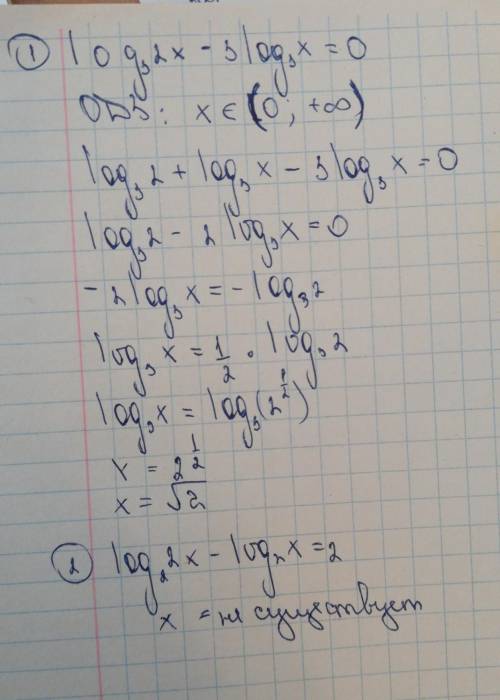 ① log₃2x - 3log₃x = 0
ОДЗ: x ∈ (0; +∞)
log₃2 + log₃x - 3log₃x = 0
log₃2 - 2log₃x = 0
-2log₃x = -log₃2
log₃x = 1/2 · log₃2
log₃x = log₃(2^(1/2))
x = 2^(1/2)
x = √2
② log₂2x - log₂x = 2
x = не существует